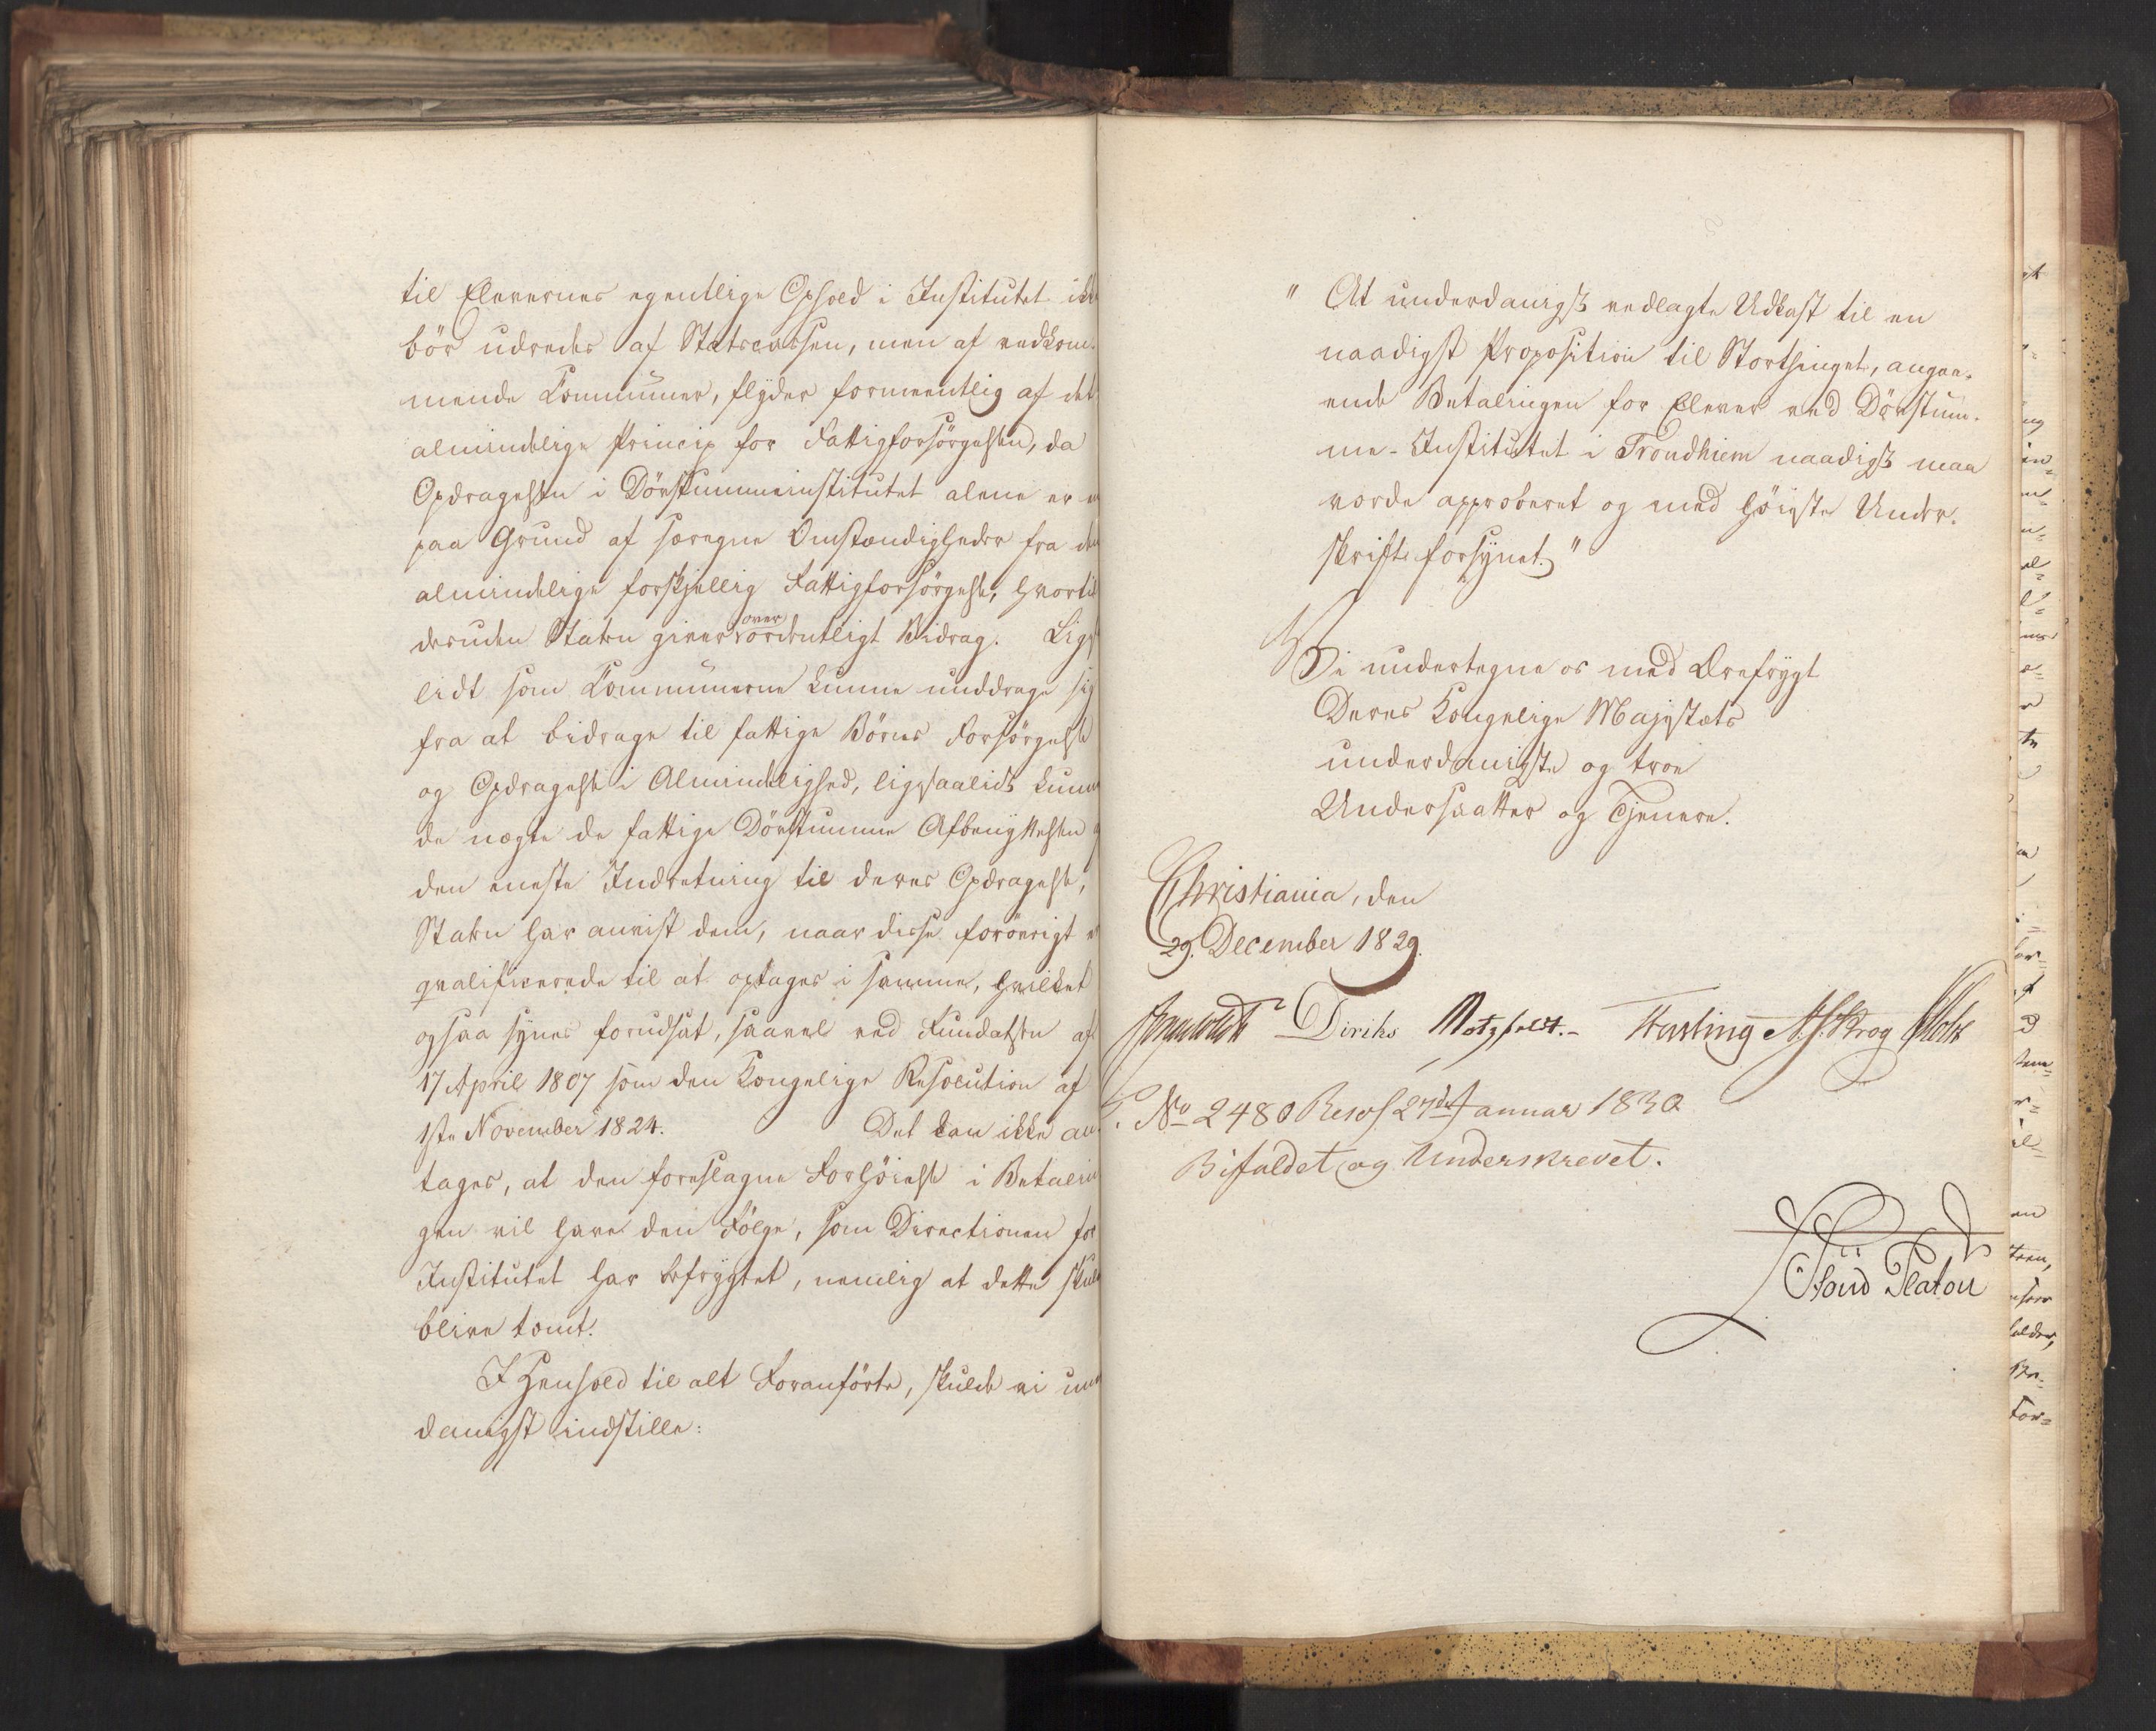 til Elevernes egentlige Ophold i Institutet ikke
bör udredes af Statscassen, men af vedkom-
mende Communer, flyder formeentlig af det
almindelige Princip for Fattigforsörgelsen, da
Opdragelsen i Dövstummeinstitutet alene er en
paa Grund af særegne Omstændigheder fra den
almindelige forskjellig Fattigforsörgelse, hvortil
desuden Staten giver overordentligt Bidrag. Lige
lidt som Communerne kunne unddrage sig
fra at bidrage til fattige Börns Forsörgelse
og Opdragelse i Almindelighed, ligesaalidt kunne
de nægte de fattige Dövstumme Afbenyttelsen
den eneste Indretning til deres Opdragelse,
Staten har anvist dem, naar disse forövrigt
qvalificerede til at optages i samme, hvilket
ogsaa synes forudsat, saavel ved Fundatsen af
17 April 1807 som den Kongelige Resolution af
1ste November 1824. Det kan ikke an-
tages, at den foreslagne Forhöielse i Betalin
gen vil have den Fölge, som Directionen for
Institutet har befrygtet, nemlig at dette skulde
blive tomt.
I Henhold til alt Foranförte, skulde vi under
danigst indstille:
" At underdanigst vedlagte Udkast til en
naadigst Proposition til Storthinget, angaa-
ende Betalingen for Elever ved Dövstum-
me-Institutet i Trondhiem naadigst maa
vorde approberet og med höieste Under-
skrift forsynet."
Vi undertegne os med Ærefrygt
Deres Kongelige Majestæts
underdanigste og troe
Undersaatter og Tjenere.
Christiania, den
29. December 1829.
Diriks Motzfeldt.- Fasting
No 2480 Resol 27de Januar 1830
Bifaldet og Underskrevet.
Oluf Platou